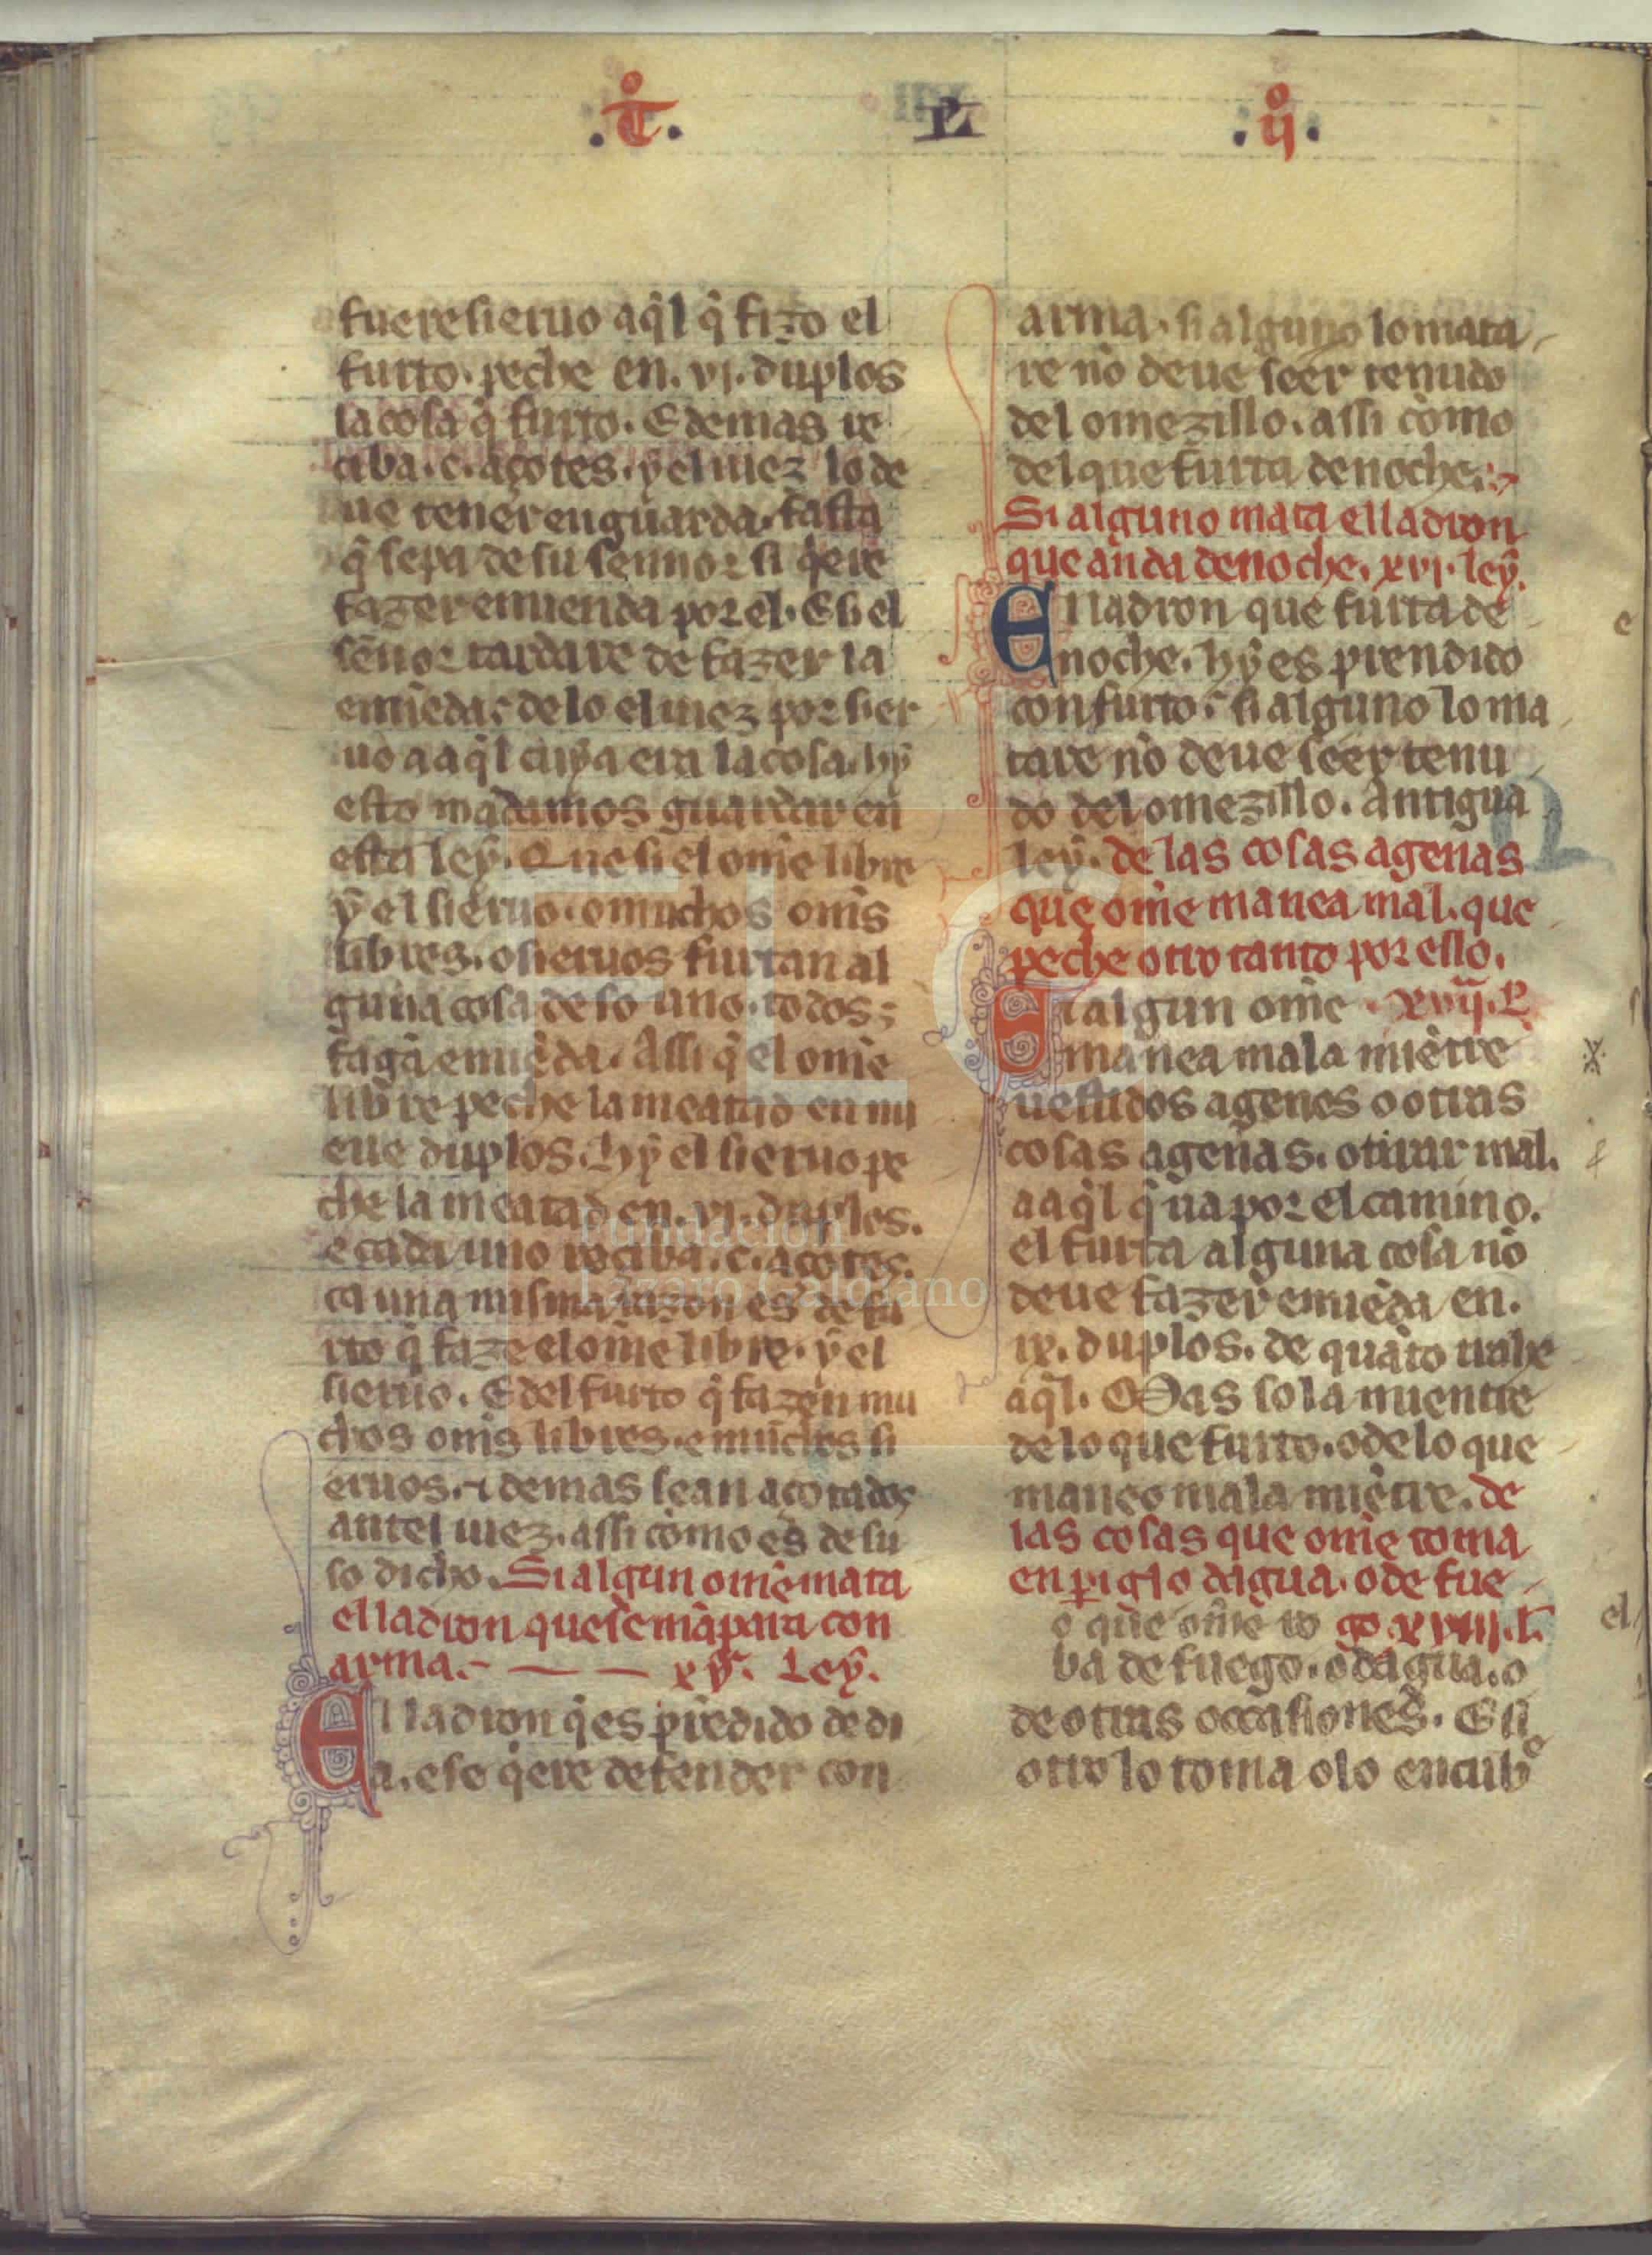 .Tº. L .ijº.
fuere sieruo aq̄l q̄ fizo el
furto. peche en. vj. duplos
la cosa q̄ furto. E demas re
ciba .c. açotes. y el iuez lo de
ue tener en guarda. fasta
q̄ sepa de su sennor si q̄ere
fazer emienda por el. E si el
sēnor tardare de fazer la
emiēda; de lo el iuez por sier
uo a aq̄l cuya era la cosa. hy
esto mādamos guardar en
esta ley. Que si el om̄e libre
y el sieruo. o muchos om̄s
libres. o sieruos furtan al
guna cosa de so uno. todos;
fagā emiēda. Assi q̄ el om̄e
libre peche la meatad en nu
eue duplos. hy el sieruo pe
che la meatad en. vj. duplos.
e cada uno reciba .c. açotes.
ca una misma razon es de fu
rto q̄ faze el om̄e libre. y el
sieruo. E del furto q̄ fazen mu
chos om̄s libres. e muchos si
eruos. ⁊ demas sean açotados
antel iuez. assi como es de su
so dicho. Si algun om̄e mata
el ladron que se māpara con
arma. xv. Ley.
El ladron q̄ es prēdido de di
a. e se q̄ere defender con
arma. si alguno lo mata
re nō deue seer tenudo
del omezillo. assi como
del que furta de noche.
Si alguno mata el ladron
que anda de noche. xvj. ley.
El ladron que furta de
noche. hy es prendido
con furto; si alguno lo ma
tare nō deue seer tenu
do del omezillo. Antigua
ley. de las cosas agenas
que om̄e manea mal. que
peche otro tanto por ello.
Et algun om̄e . xvij. L
manea mala miētre
uestidos agenos o otras
cosas agenas. o tirar mal.
a aq̄l q̄ ua por el camino.
el furta alguna cosa nō
deue fazer emiēda en.
ix. duplos. de quāto trahe
aq̄l. Mas sola miente
de lo que furto. o de lo que
maneo mala miētre. de
las cosas que om̄e toma
en p̄iglo dagua. o de fue
o que om̄e ro go. xviij. l.
ba de fuego. o dagua. o
de otras occasiones. E si
otro lo toma o lo encub